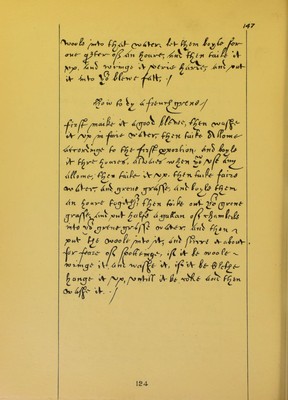 147
woole into that water, let them boyle for
one qter off an houre, and then take it
vp, and wringe it verie harde, and put
it into yr blewe fatt. /
How to dy a french grene /
first make it a good blewe, then washe
it vp in faire water, then take Allome
accordinge to the first proportion, and boyle
it thre houres, alwaies when yu vse any
allome, then take it vp, then take faire
water, and grene grasse, and boyle them
an houre together then take out yr grene
grasse, and put halfe a gallan off
into yr grene grasse water. and then
put the woole into it, and stirre it about
for feare off, if it be woole
wringe it and washe it, if it be Clothe
hange it vp, vntill it be colde and then
washe it. /
124